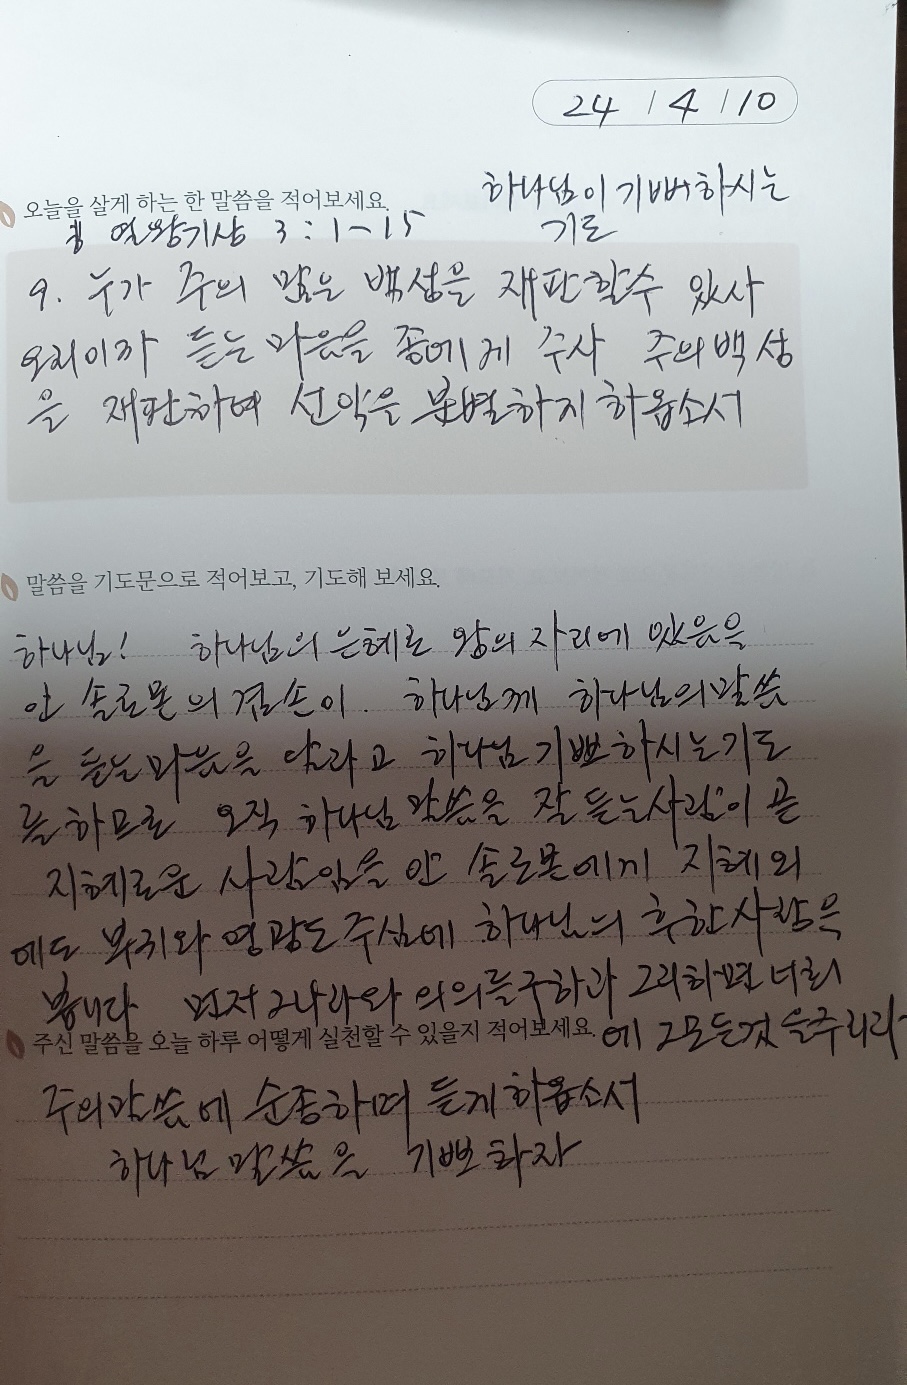 24 / 4 / 10
하나님이 기뻐하시는
오늘을 살게 하는 한 말씀을 적어보세요.
기도
열왕기상 3:1-15
9. 누가 주의 많은 백성을 재판할수 있사
오리이까 듣는 마음을 종에게 주사 주의백성
을 재판하여 선악을 분별하게 하옵소서
말씀을 기도문으로 적어보고, 기도해 보세요.
하나님! 하나님의 은혜로 왕의 자리에 있음을
안 솔로몬의 겸손이. 하나님께 하나님의말씀
을 듣는마음을 달라고 하나님 기뻐하시는기도
를하므로 오직 하나님 말씀을 잘 듣는사람이 곧
지혜로운 사람임을 안 솔로몬에게 지혜외
에도 부귀와 영광도 주심에 하나님의 후한사랑을
봅니다 먼저 그나라와 의의를구하라 그리하면 너희
주신 말씀을 오늘 하루 어떻게 실천할 수 있을지 적어보세요.
에 그모든것을주리라
주의말씀에 순종하며 듣게하옵소서
하나님 말씀을 기뻐하자